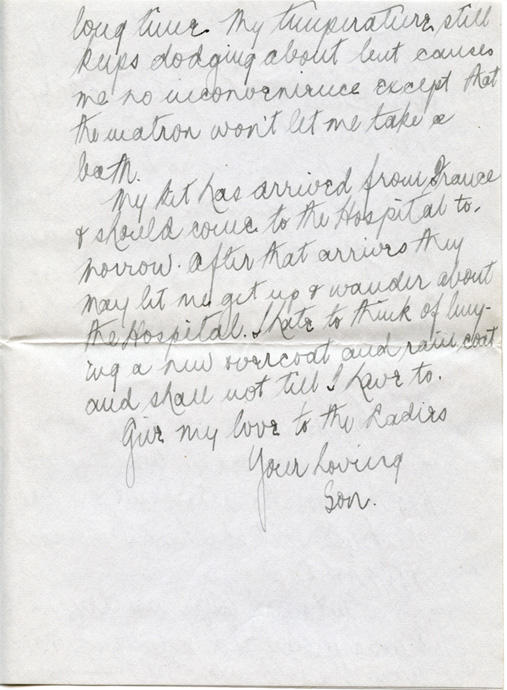 long time. My temperature still
keeps dodging about but causes
me no inconvenience except that
the matron won't let me take a
bath.
My kit has arrived from France
& should come to the Hospital to-
morrow. After that arrives they
may let me get up & wander about
the Hospital. I hate to think of buy-
ing a new overcoat and rain coat
and shall not till I have to.
Give my love to the Ladies
Your Loving
Son.